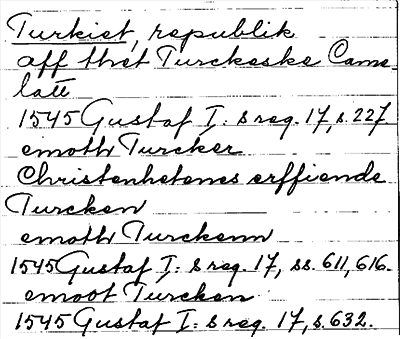 Turkiet, republik
aff thet Turckeske Came
latt
1545 Gustaf I: s reg. 17, s. 227
emoth Turcker
Christenhetenes erffiende
Turcken
emoth Turckenn
1545 Gustaf I: s reg. 17, ss. 611, 616.
emoot Turcken
1545 Gustaf I: s reg. 17, s. 632.